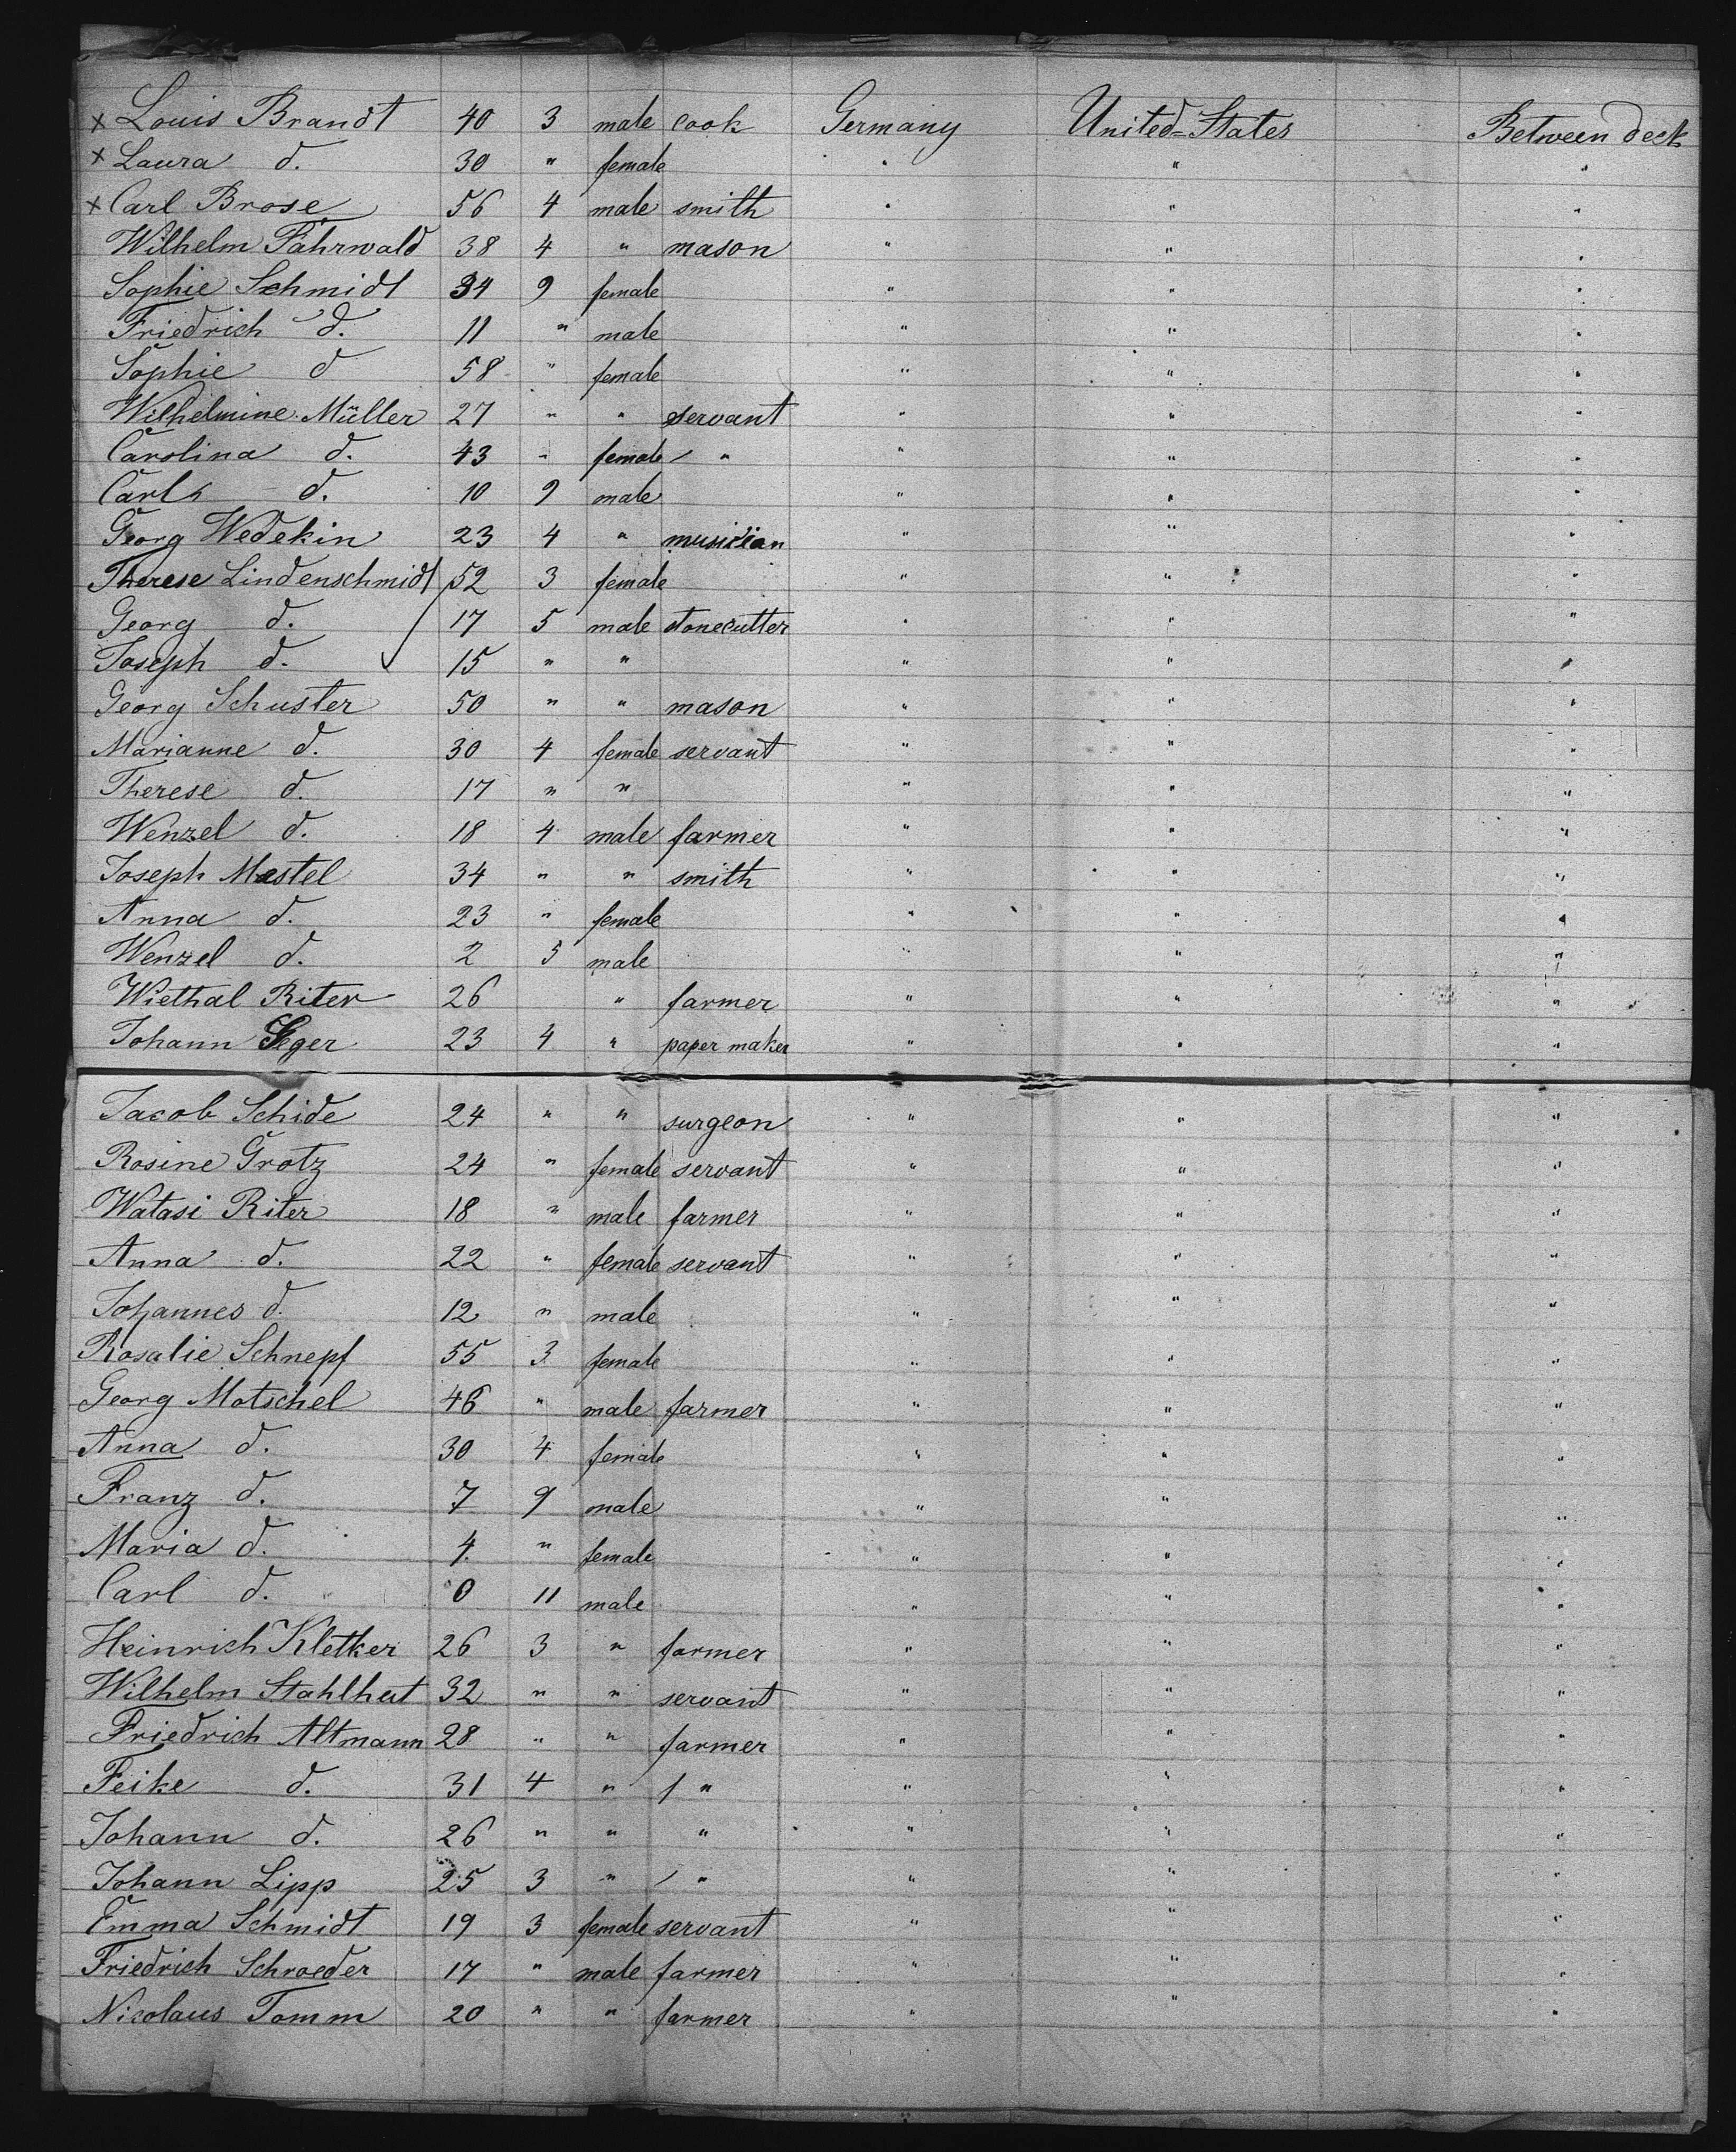 x Louis Brandt 40 3 male cook Germany United-States Between deck
x Laura d. 30 " female " " "
x Carl Brose 56 4 male smith " " "
Wilhelm Fahrwald 38 4 " mason " " "
Sophie Schmidt 34 9 female " " "
Friedrich d. 11 " male " " "
Sophie d 58 " female " " "
Wilhelmine Müller 27 " " servant " " "
Carolina d. 43 " female " " " "
Carl d. 10 9 male " " "
Georg Wedekin 23 4 " musician " " "
Therese Lindenschmidt 52 3 female " " "
Georg d. 17 5 male stonecutter " " "
Joseph d. 15 " " " " "
Georg Schuster 50 " " mason " " "
Marianne d. 30 4 female servant " " "
Therese d. 17 " " " " "
Wenzel d. 18 4 male farmer " " "
Joseph Mastel 34 " " smith " " "
Anna d. 23 " female " " "
Wenzel d. 2 5 male " " "
Wiethal Riter 26 " farmer " " "
Johann Jeger 23 4 " paper maker " " "
Jacob Schide 24 " " surgeon " " "
Rosine Grotz 24 " female servant " " "
Watasi Riter 18 " male farmer " " "
Anna d. 22 " female servant " " "
Johannes d. 12 " male " " "
Rosalie Schnepf 55 3 female " " "
Georg Motschel 46 " male farmer " " "
Anna d. 30 4 female " " "
Franz d. 7 9 male " " "
Maria d. 4 " female " " "
Carl d. 0 11 male " " "
Heinrich Kletker 26 3 " farmer " " "
Wilhelm Stahlhut 32 " " servant " " "
Friedrich Altmann 28 " " farmer " " "
Feike d. 31 4 " " " " "
Johann d. 26 " " " " " "
Johann Lipp 25 3 " " " " "
Emma Schmidt 19 3 female servant " " "
Friedrich Schroeder 17 " male farmer " " "
Nicolaus Tomm 20 " " farmer " " "